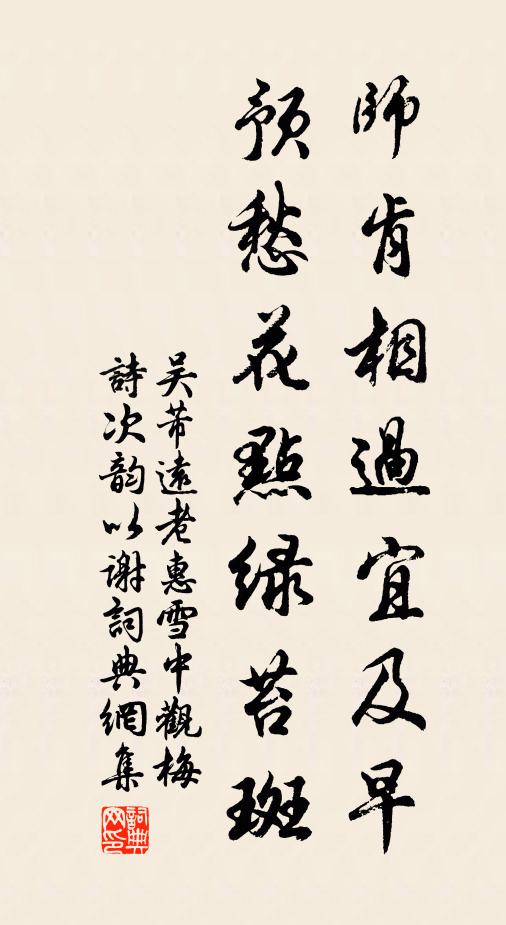 師肯相過宜及早
預愁花點緑苔斑
吴芾遠老惠雪中觀梅
詩次韵以谢詞典網集
詞典
网印